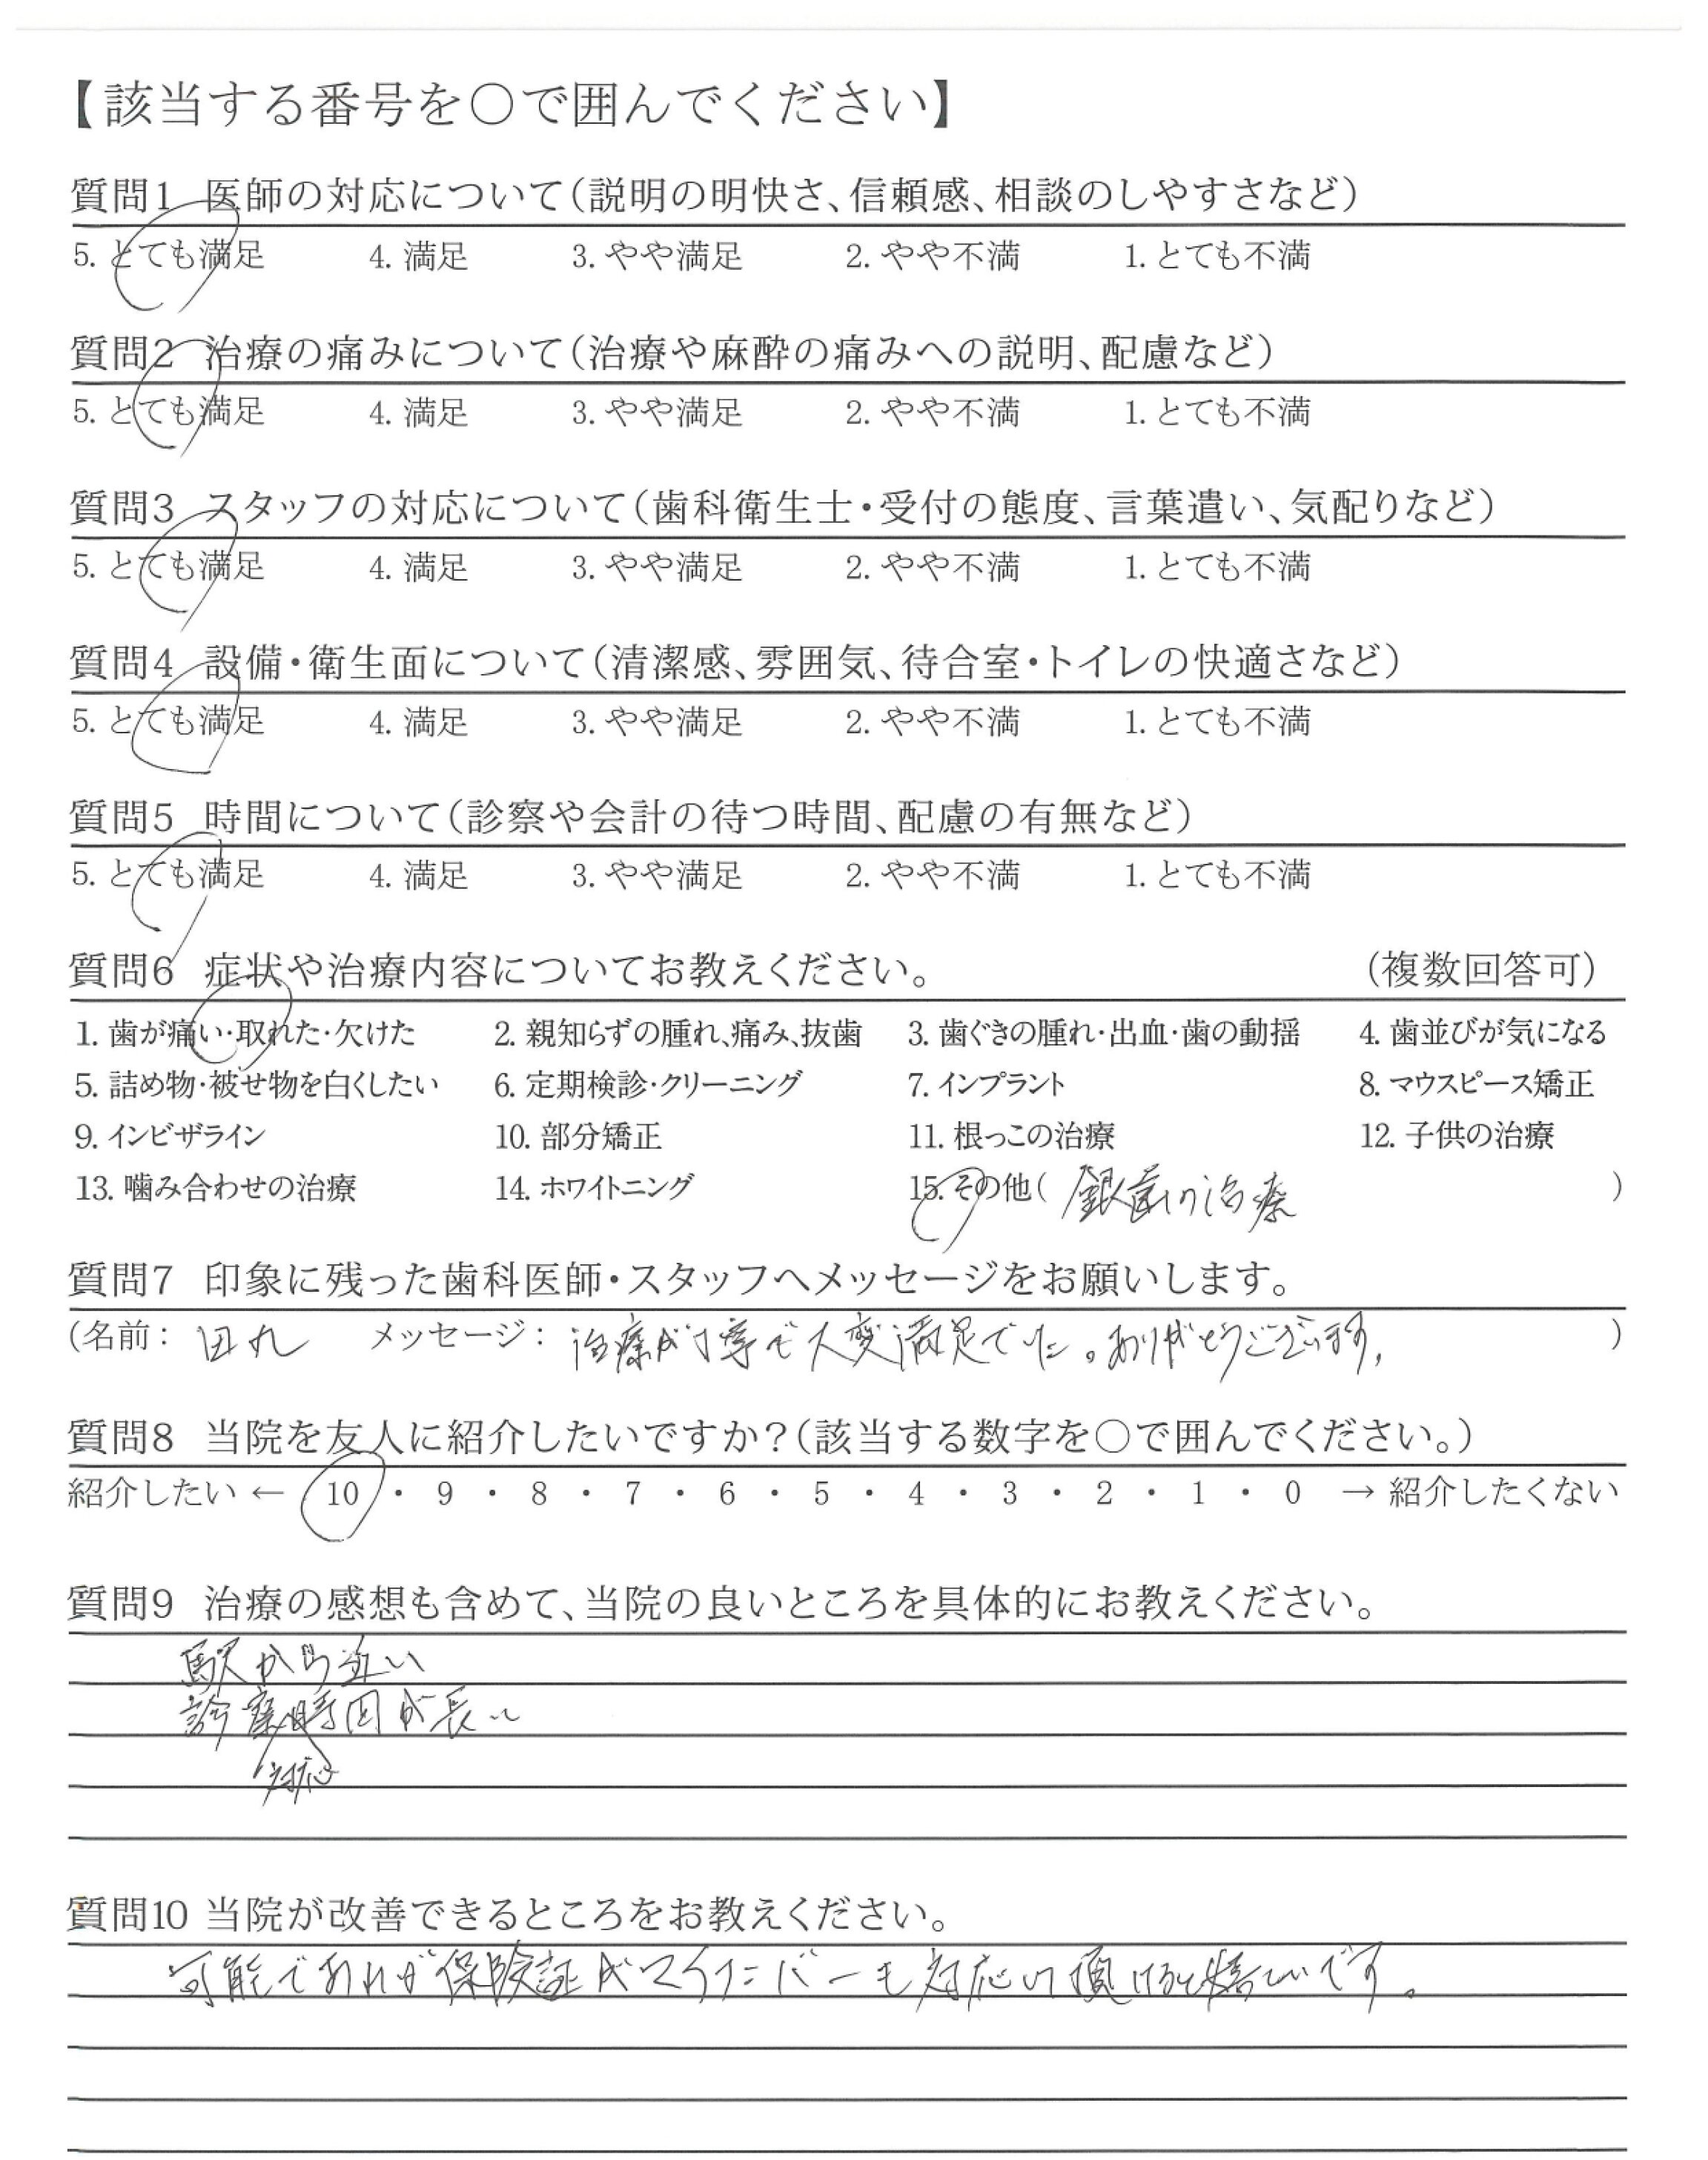 【該当する番号を○で囲んでください】
質問1 医師の対応について(説明の明快さ、信頼感、相談のしやすさなど)
5. とても満足 4. 満足 3. やや満足 2. やや不満 1. とても不満
質問2 治療の痛みについて(治療や麻酔の痛みへの説明、配慮など)
5. とても満足 4. 満足 3. やや満足 2. やや不満 1. とても不満
質問3 スタッフの対応について(歯科衛生士・受付の態度、言葉遣い、気配りなど)
5. とても満足 4. 満足 3. やや満足 2. やや不満 1. とても不満
質問4 設備・衛生面について(清潔感、雰囲気、待合室・トイレの快適さなど)
5. とても満足 4. 満足 3. やや満足 2. やや不満 1. とても不満
質問5 時間について(診察や会計の待つ時間、配慮の有無など)
5. とても満足 4. 満足 3. やや満足 2. やや不満 1. とても不満
質問6 症状や治療内容についてお教えください。 (複数回答可)
1. 歯が痛い・取れた・欠けた 2. 親知らずの腫れ、痛み、抜歯 3. 歯ぐきの腫れ・出血・歯の動揺 4. 歯並びが気になる
5. 詰め物・被せ物を白くしたい 6. 定期検診・クリーニング 7. インプラント 8. マウスピース矯正
9. インビザライン 10. 部分矯正 11. 根っこの治療 12. 子供の治療
13. 噛み合わせの治療 14. ホワイトニング 15. その他( 銀歯の治療 )
質問7 印象に残った歯科医師・スタッフへメッセージをお願いします。
(名前: メッセージ: 治療が丁寧で大変満足でした。ありがとうございます。 )
質問8 当院を友人に紹介したいですか?(該当する数字を○で囲んでください。)
紹介したい ← 10 ・ 9 ・ 8 ・ 7 ・ 6 ・ 5 ・ 4 ・ 3 ・ 2 ・ 1 ・ 0 → 紹介したくない
質問9 治療の感想も含めて、当院の良いところを具体的にお教えください。
駅から近い
診療時間が長い
対応
質問10 当院が改善できるところをお教えください。
可能であれば保険証がマイナンバーも対応して頂けると嬉しいです。